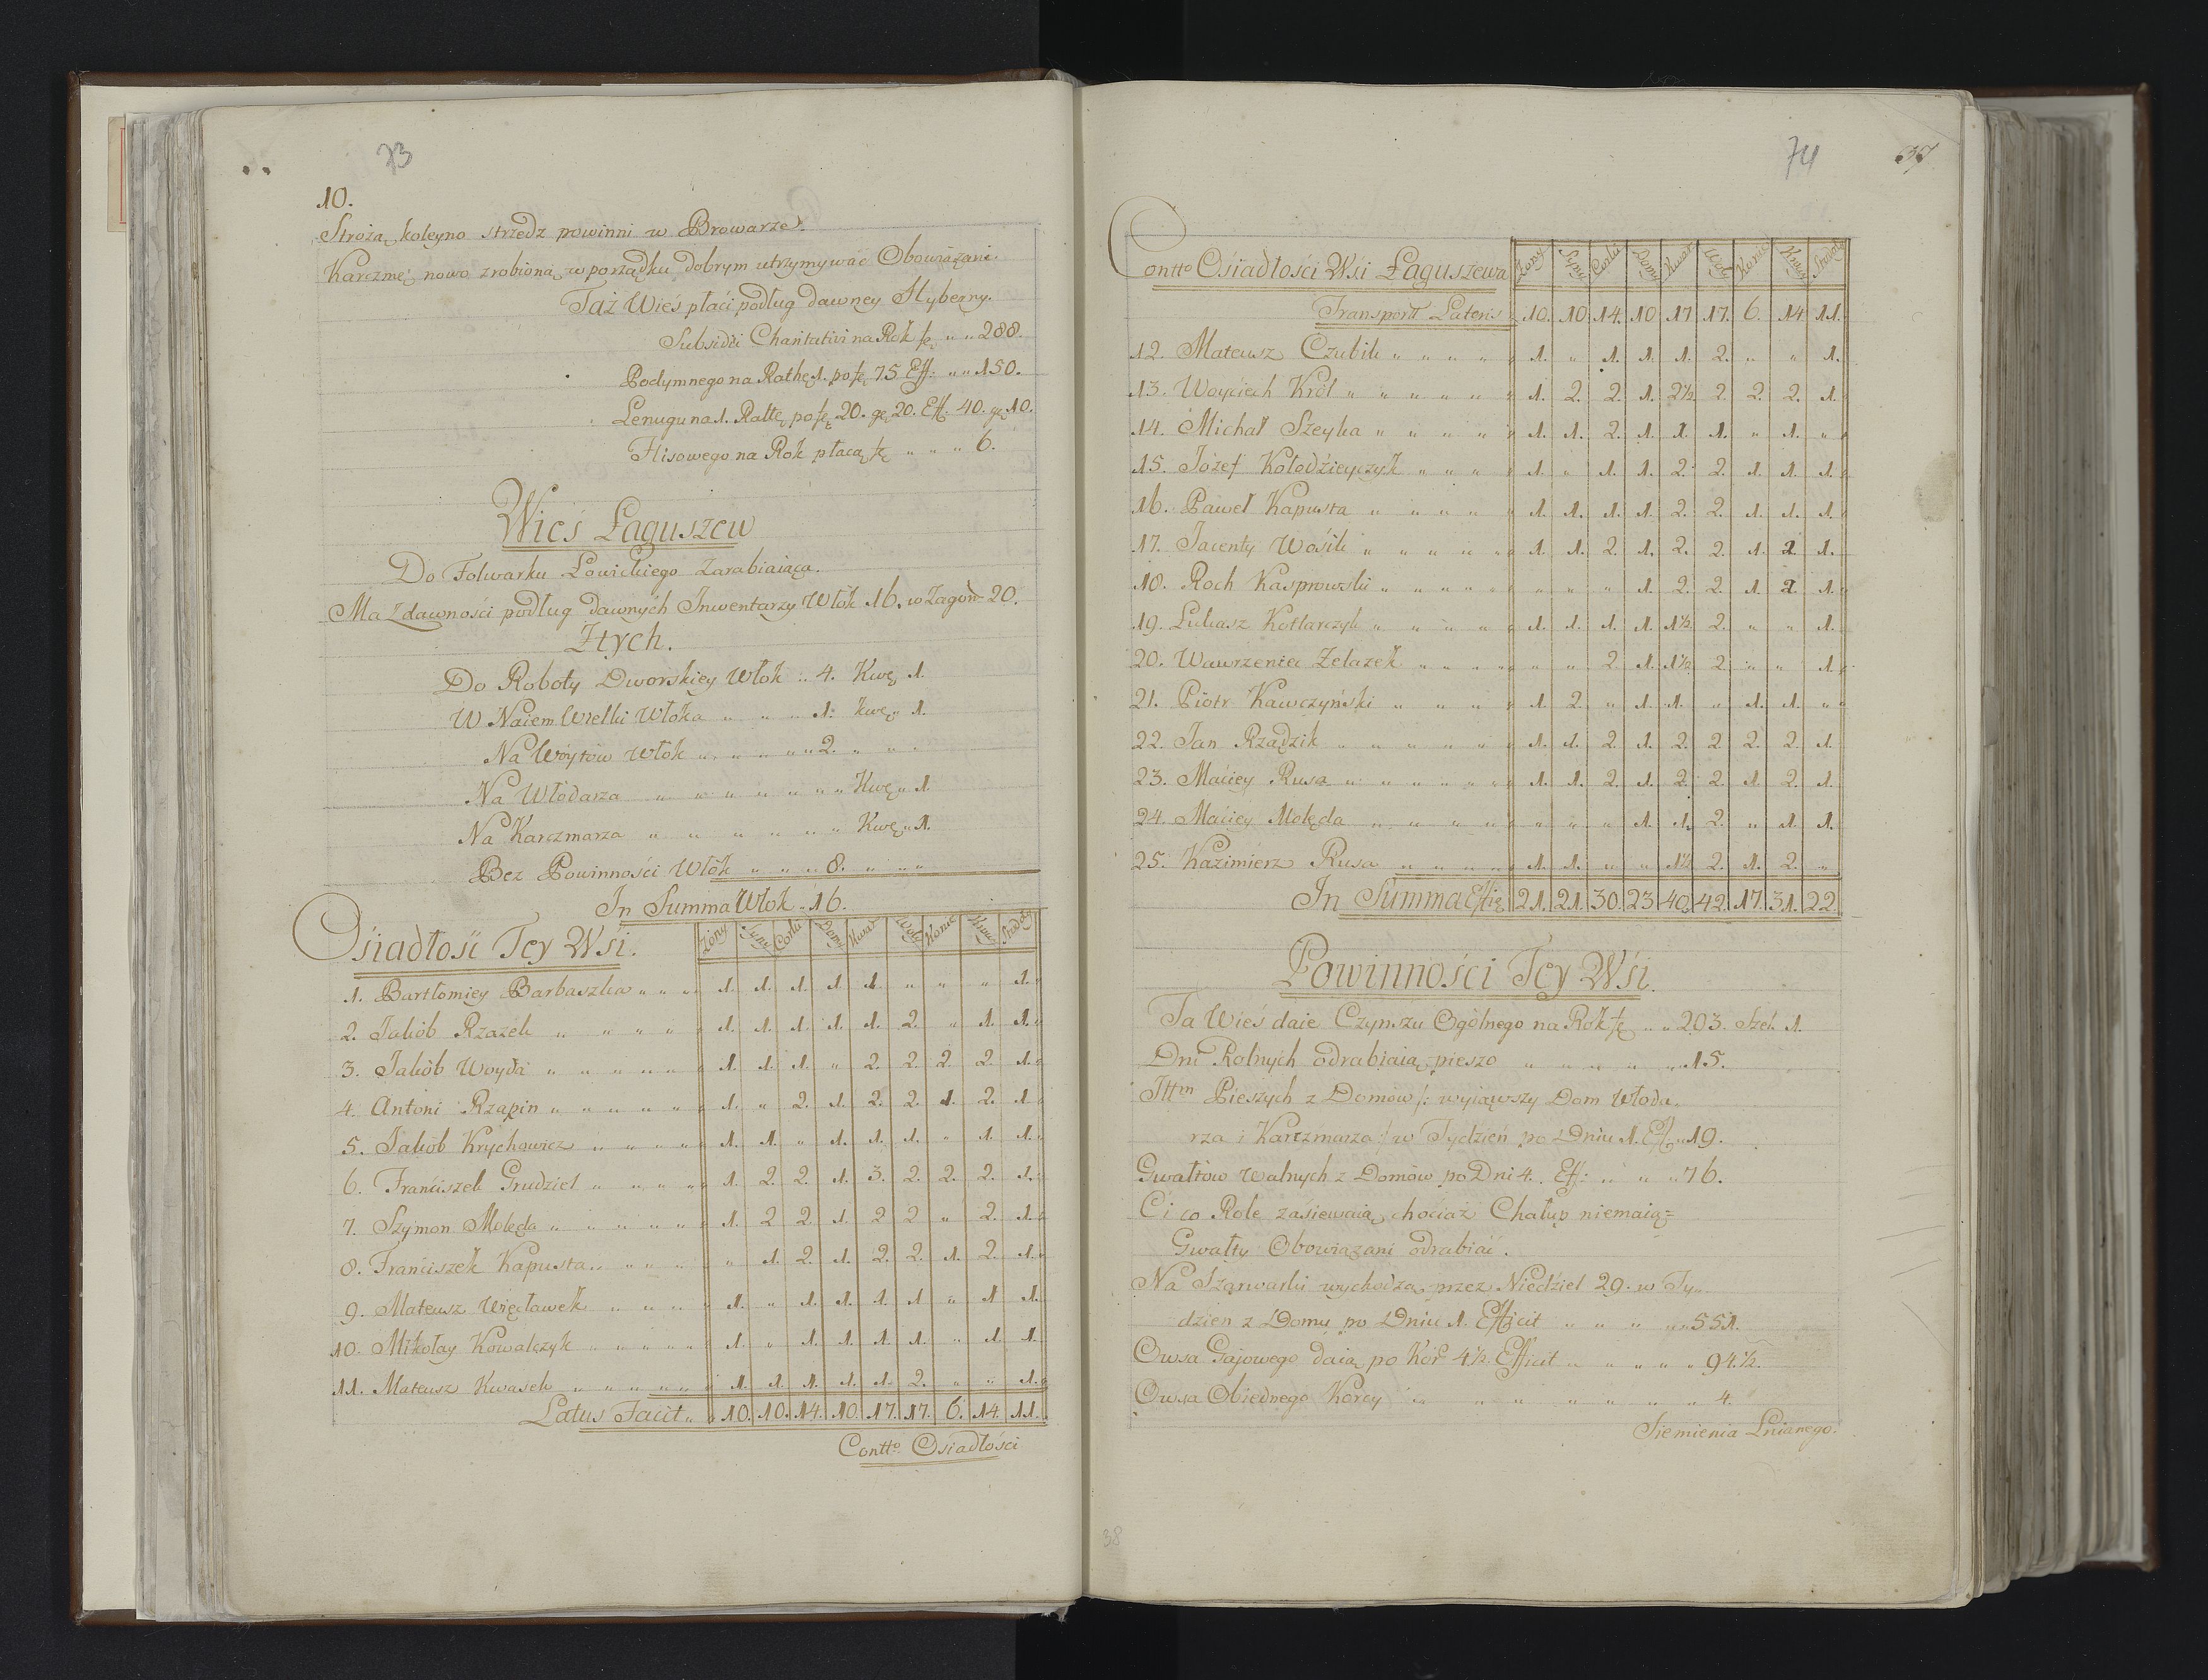 73
10.
Strożą koleyno strzedz powinni w Browarze.
Karczmę nowo zrobioną w porządku dobrym utrzymywac Obowiązani.
Taż Wieś płaci podług dawney Hyberny.
Subsidii Charitativi na Rok fz " " 288.
Podymnego na Rathę 1. po fz 75 Eff: " " 150.
Lenugu na 1. Rattę po fz 20. gę 20. Eff. 40. gę 10.
Flisowego na Rok płacą fz " " " 6.
Wieś Łaguszew
Do Folwarku Łowickiego Zarabiaiąca.
Ma Zdawności podług dawnych Inwentarzy Włók 16. w Zagon 20.
Ztych.
Do Roboty Dworskiey Włok " 4. Kwę 1.
W Naiem Wielki Włoka " " " 1. kwę " 1.
Na Woytow Włok " " " " " 2. " " "
Na Włodarza " " " " " " " Kwę " 1.
Na Karczmarza " " " " " " Kwę " 1.
Bez Powinności Włók " " " 8. " " "
In Summa Włok - 16.
Osiadłość Tey Wsi. Zony Syny Corki Domy Kwar. Woły Konie Krowy Stodoły
1. Bartłomiey Barbaszka " " " 1. 1. 1. 1. 1. " " " 1.
2. Jakób Rzazek " " " " 1. 1. 1. 1. 1. 2. " 1. 1.
3. Jakób Woyda " " " " " 1. 1. 1. " 2. 2. 2. 2. 1.
4. Antoni Rzapin " " " " " 1. " 2. 1. 2. 2. 1. 2. 1.
5. Jakób Krychowicz " " " " 1. 1. " 1. 1. 1. " 1. 1.
6. Franciszek Grudziel " " " " 1. 2. 2. 1. 3. 2. 2. 2. 1.
7. Szymon Molęda " " " " " 1. 2 2. 1. 2 2 " 2. 1.
8. Franciszek Kapusta " " " " " 1. 2. 1. 2. 2. 1. 2. 1.
9. Mateusz Więcławek " " " " 1. " 1. 1. 1. 1 " 1 1.
10. Mikołay Kowalczyk " " " " " 1. " 1. 1. 1. 1. " 1. 1.
11. Mateusz Kwasek " " " " " 1. 1. 1. 1. 1. 2. " " 1.
Latus Facit " 10. 10. 14. 10. 17. 17. 6. 14. 11.
Contto Osiadłości
74 37
Contto Osiadłości Wsi Łaguszewa Zony Syny Corki Domy Kwar. Woły Konie Krowy Stodoły
Transportt Lateris 10. 10. 14. 10. 17. 17. 6. 14. 11.
12. Mateusz Czubik " " " " 1. " 1. 1. 1. 2. " " 1.
13. Woyciech Król " " " " " 1. 2. 2. 1. 2½ 2. 2. 2. 1.
14. Michał Szeyka " " " " 1. 1. 2. 1. 1. 1. " 1. "
15. Józef Kołodzieyczyk " " " " 1. " 1. 1. 2. 2. 1. 1. 1.
16. Paweł Kapusta " " " " 1. 1. 1. 1. 2. 2. 1. 1. 1.
17. Jacenty Wosik " " " " " 1. 1. 2. 1. 2. 2. 1. 2. 1.
18. Roch Kasprowski " " " " " " " " 1. 2. 2. 1. 2. 1.
19. Łukasz Kotlarczyk " " " " 1. 1. 1. 1. 1½ 2. " " 1.
20. Wawrzeniec Zelazek " " " " " " 2. 1. 1½ 2. " " 1.
21. Piotr Kawczyński " " " " 1. 2. " 1. 1. " 1. 1. "
22. Jan Rządzik " " " " " " 1. 1. 2. 1. 2. 2. 2. 2. 1.
23. Maciey Rusa " " " " " " 1. 1. 2. 1. 2. 2. 1. 2. 1.
24. Maciey Molęda " " " " " " " " 1. 1. 2. " 1. 1.
25. Kazimierz Rusa " " " " 1. 1. " " 1½ 2. 1. 2. "
In Summa Effię 21. 21. 30. 23. 40. 42. 17. 31. 22.
Powinności Tey Wsi.
Ta Wieś daie Czynszu Ogólnego na Rok fz " " 203. Szel. 1.
Dni Rolnych odrabiaią pieszo " " " " " 15.
Ittm Pieszych z Domow /: wyiąwszy Dom Włoda.
rza i Karczmarza :/ w Tydzień po Dniu 1. Eff " 19.
Gwałtow Walnych z Domow po Dni 4. Eff: " " " 76.
Ci co Role zasiewaią, chociaż Chałup niemaią =
Gwałty Obowiązani odrabiać.
Na Szarwarki wychodzą przez Niedziel 29. w Ty-
dzien z Domu po Dniu 1. Efficit " " " " 551.
Owsa Gajowego daią po Kor 4½. Efficit " " " " 94½.
Owsa Obiednego Korcy " " " " " " " 4.
Siemienia Lnianego.
38